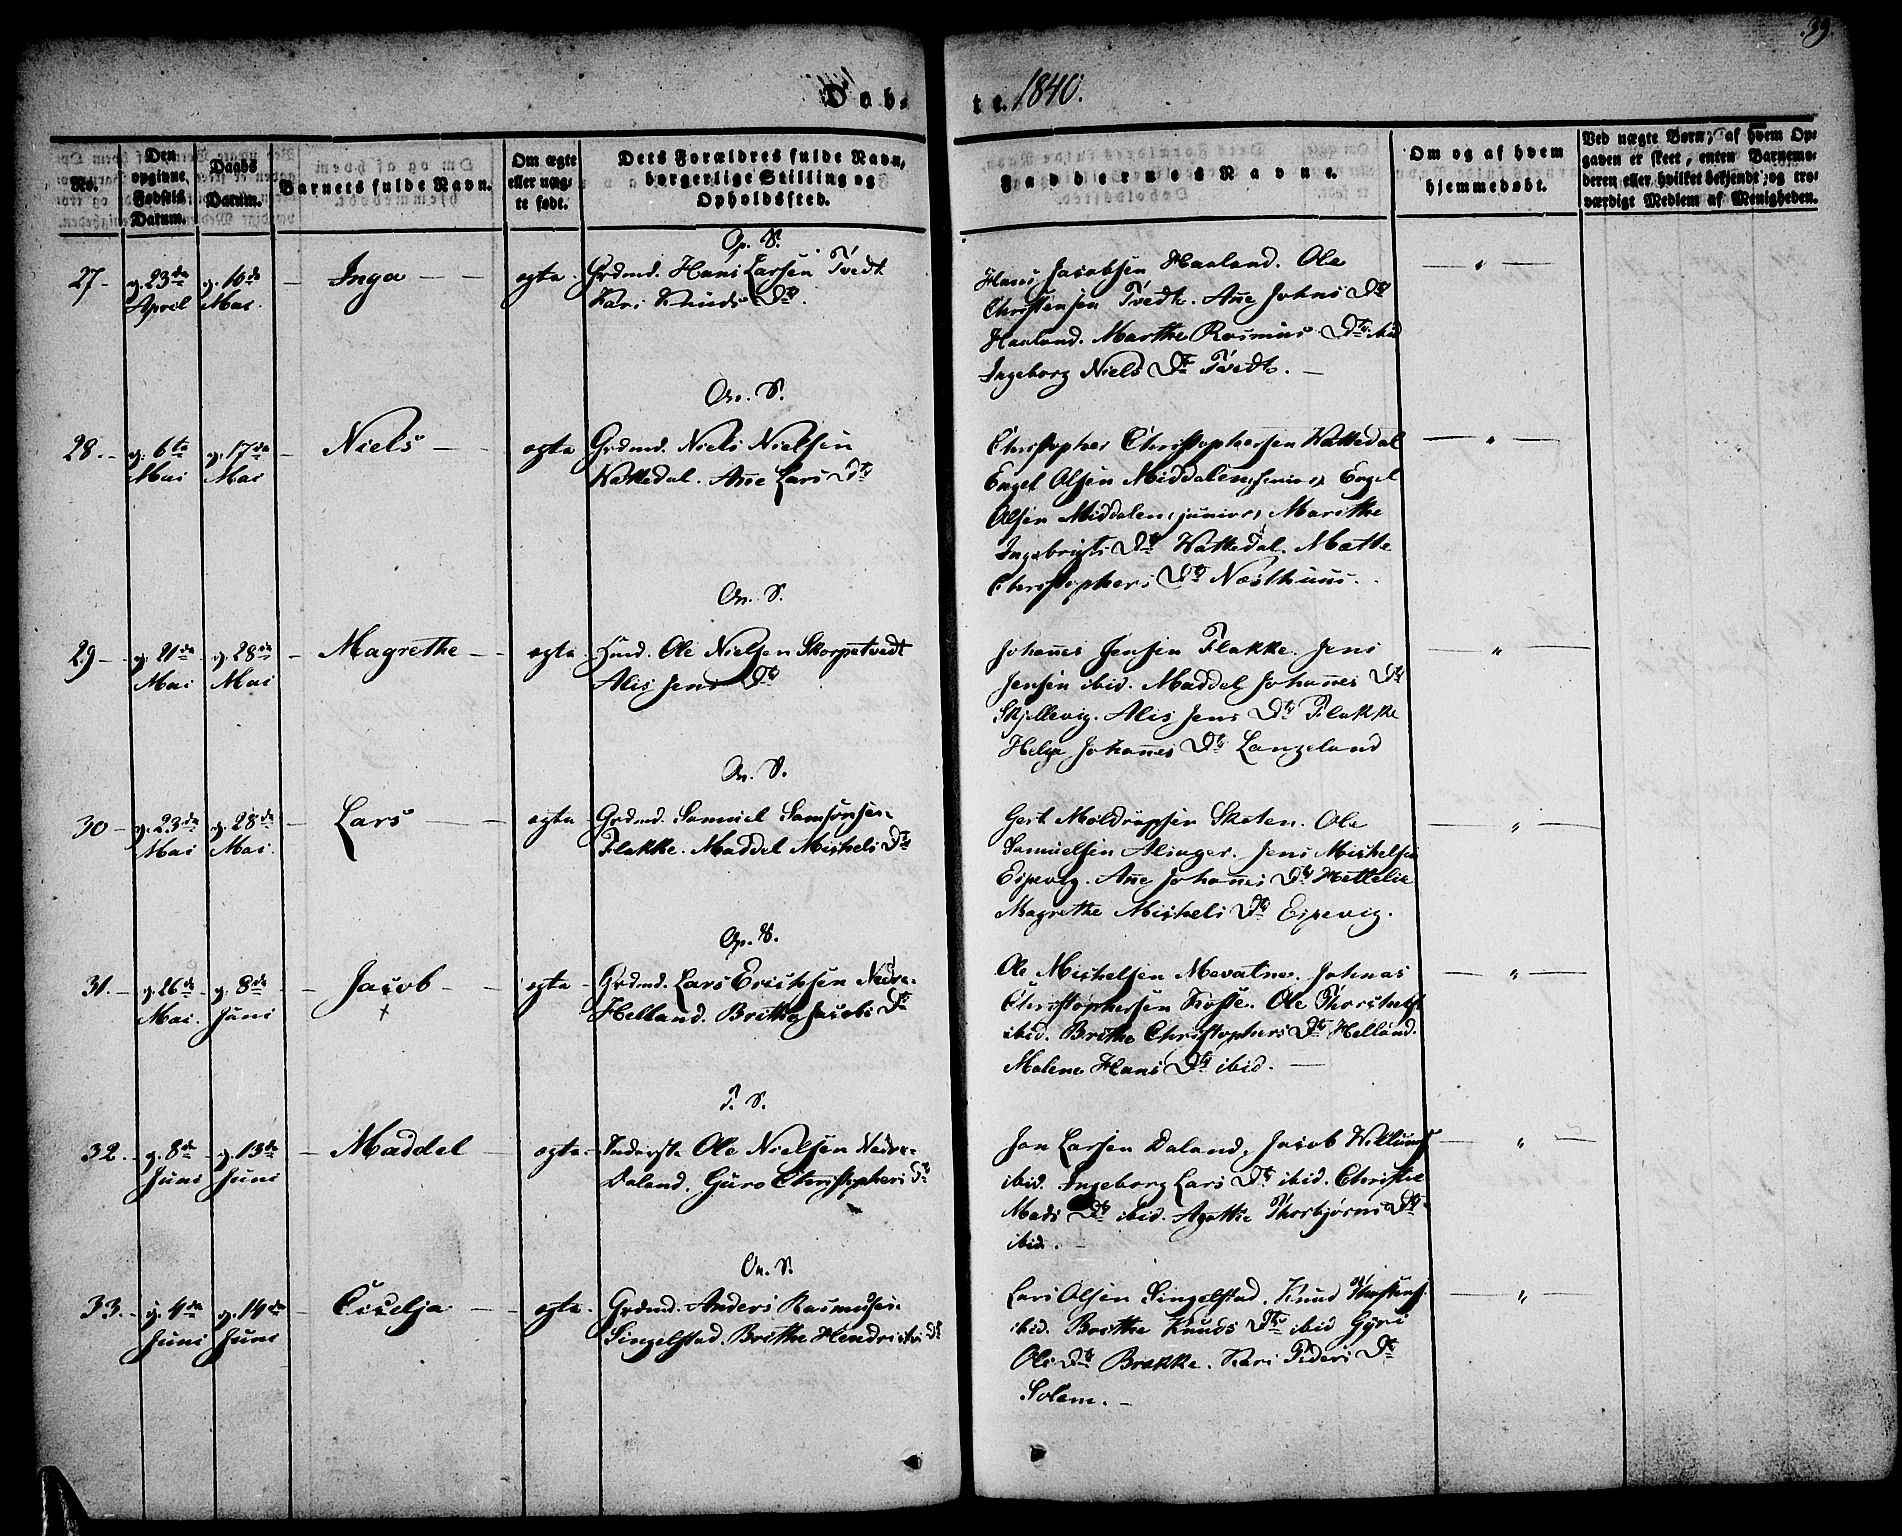 39.
Døb-
te. 1840.
No.
Den
opgivne
Fødsels
Datum.
Daabs
Datum.
Barnets fulde Navn.
Om ægte
eller uæg-
te født.
Dets Forældres fulde Navn,
borgerlige Stilling og
Opholdssted.
Faddernes Navne.
Om og af hvem
hjemmedøbt.
Ved uægte Børn, af hvem Op-
gaven er skeet, enten Barnemo-
deren eller hvilket bekjendt og tro-
værdigt Medlem af Menigheden.
Op. S.
27 - 23de April 10de Mai. - Inga - ægte Grdmd. Hans Larsen Tvedt
Kari Knuds Dtr.
Hans Jacobsen Haaland. Ole
Christensen Tvedt. Añe Johns Dtr
Haaland. Marthe Rasmus Dtr. ibid
Ingeborg Niels Dtr Tvedt. -
On. S.
28. - 6te Mai 17de Mai - Niels - ægte Grdmd. Niels Nielsen
Wattedal. Añe Lars Dtr
Christopher Christophersen Wattedal
Engel Olsen Middalen (senior) Engel
Olsen Middalen (junior) Marithe
Ingebrigts Dtr Wattedal. Mætte
Christophers Dtr Næsthuus.
On. S.
29 - 21de Mai 28de Mai - Magrethe - ægte Hmd. Ole Nielsen Skorpetvedt
Alis Jens Dtr
Johañes Jensen Flakke. Jens
Jensen ibid. Maddel Johañes Dtr
Skjellevig. Alis Jens Dtr Flakke
Helga Johañes Dtr Langeland
On. S.
30 - 23de Mai 28de Mai. - Lars - ægte Grdmd. Samuel Samsonsen
Flakke. Maddel Michels Dtr
Gert Moldrupsen Skaten. Ole
Samuelsen Alsager. Jens Michelsen
Espevig. Añe Johañes Dtr Hettelie
Magrethe Michels Dtr Espevig.
Op. S.
31. - 26de Mai. 8de Juni - Jacob - ægte Grdmd. Lars Erichsen Nedre-
Helland. Brithe Jacobs Dtr
Ole Michelsen Mevatne. Johnas
Christophersen Fosse. Ole
ibid. Brithe Christophers Dtr Helland.
Malene Hans Dtr ibid. -
T. S.
32. - 8de Juni 13de Juni - Maddel - ægte Inderste Ole Nielsen Nedre-
Daland. Guro Christophers Dtr
Jon Larsen Daland, Jacob
ibid. Ingeborg Lars Dtr ibid. Christie
Mads Dtr ibid. Agathe Thorbjørns Dtr
ibid. -
On. S.
33. - 4de Juni 14de Juni - Cicelja - ægte Grdmd. Anders Rasmusen
Singelstad. Brithe Hendrichs Dtr
Lars Olsen Singelstad. Knud
ibid. Brithe Knuds Dtr ibid Gyri
Ols Dtr Brekke. Kari Peders Dtr
Solem. -